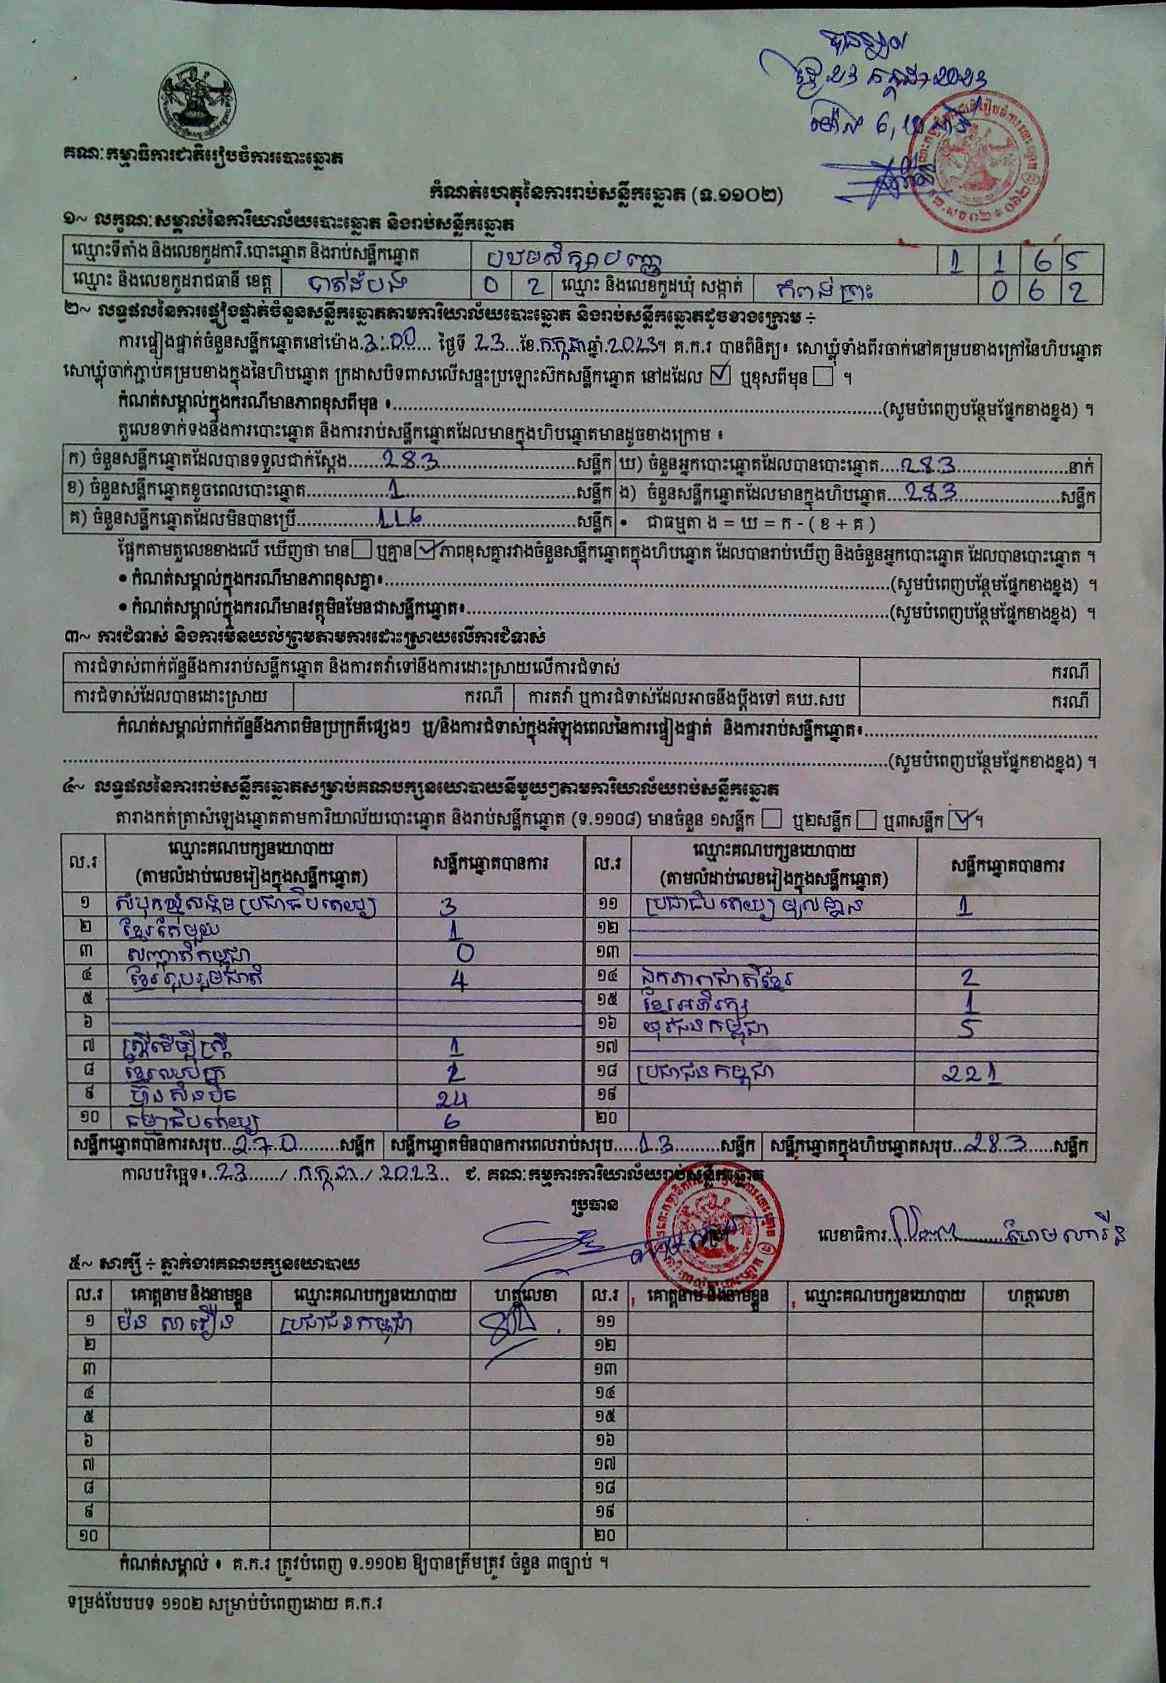 បានឃើញ
ថ្ងៃ 23 កក្កដា 2023
គណៈកម្មាធិការជាតិរៀបចំការបោះឆ្នោត
កំណត់ហេតុនៃការរាប់សន្លឹកឆ្នោត (ទ.១១០២)
១~ លក្ខណៈសម្គាល់នៃការិយាល័យបោះឆ្នោត និងរាប់សន្លឹកឆ្នោត
ឈ្មោះទីតាំង និងលេខកូដការិ.បោះឆ្នោត និងរាប់សន្លឹកឆ្នោត 1 1 6 5
ឈ្មោះ និងលេខកូដរាជធានី ខេត្ត បាត់ដំបង 0 2 ឈ្មោះ និងលេខកូដឃុំ សង្កាត់ កំពង់ព្រះ 0 6 2
២~ លទ្ធផលនៃការផ្ទៀងផ្ទាត់ចំនួនសន្លឹកឆ្នោតតាមការិយាល័យបោះឆ្នោត និងរាប់សន្លឹកឆ្នោតដូចខាងក្រោម ÷
ការផ្ទៀងផ្ទាត់ចំនួនសន្លឹកឆ្នោតនៅម៉ោង 3:00 ថ្ងៃទី 23 ខែ កក្កដា ឆ្នាំ 2023។ គ.ក.រ បានពិនិត្យ៖ សោឃ្លុំទាំងពីរចាក់នៅគម្របខាងក្រៅនៃហិបឆ្នោត
សោឃ្លុំចាក់ភ្ជាប់គម្របខាងក្នុងនៃហិបឆ្នោត ក្រដាសបិទពាសលើសន្ទះប្រឡោះស៊កសន្លឹកឆ្នោត នៅដដែល ☑ ឬខុសពីមុន ☐ ។
កំណត់សម្គាល់ក្នុងករណីមានភាពខុសពីមុន ៖ (សូមបំពេញបន្ថែមផ្នែកខាងខ្នង) ។
តួលេខទាក់ទងនឹងការបោះឆ្នោត និងការរាប់សន្លឹកឆ្នោតដែលមានក្នុងហិបឆ្នោតមានដូចខាងក្រោម ៖
ក) ចំនួនសន្លឹកឆ្នោតដែលបានទទួលជាក់ស្តែង 283 សន្លឹក ឃ) ចំនួនអ្នកបោះឆ្នោតដែលបានបោះឆ្នោត 283 នាក់
ខ) ចំនួនសន្លឹកឆ្នោតខូចពេលបោះឆ្នោត 1 សន្លឹក ង) ចំនួនសន្លឹកឆ្នោតដែលមានក្នុងហិបឆ្នោត 283 សន្លឹក
គ) ចំនួនសន្លឹកឆ្នោតដែលមិនបានប្រើ 116 សន្លឹក • ជាធម្មតា ង = ឃ = ក - ( ខ + គ )
ផ្អែកតាមតួលេខខាងលើ ឃើញថា មាន ☐ ឬគ្មាន ☑ ភាពខុសគ្នារវាងចំនួនសន្លឹកឆ្នោតក្នុងហិបឆ្នោត ដែលបានរាប់ឃើញ និងចំនួនអ្នកបោះឆ្នោត ដែលបានបោះឆ្នោត ។
• កំណត់សម្គាល់ក្នុងករណីមានភាពខុសគ្នា៖ (សូមបំពេញបន្ថែមផ្នែកខាងខ្នង) ។
• កំណត់សម្គាល់ក្នុងករណីមានវត្ថុមិនមែនជាសន្លឹកឆ្នោត៖ (សូមបំពេញបន្ថែមផ្នែកខាងខ្នង) ។
៣~ ការជំទាស់ និងការមិនយល់ព្រមតាមការដោះស្រាយលើការជំទាស់
ការជំទាស់ពាក់ព័ន្ធនឹងការរាប់សន្លឹកឆ្នោត និងការតវ៉ាទៅនឹងការដោះស្រាយលើការជំទាស់ ករណី
ការជំទាស់ដែលបានដោះស្រាយ ករណី ការតវ៉ា ឬការជំទាស់ដែលអាចនឹងប្តឹងទៅ គឃ.សប ករណី
កំណត់សម្គាល់ពាក់ព័ន្ធនឹងភាពមិនប្រក្រតីផ្សេងៗ ឬ/និងការជំទាស់ក្នុងអំឡុងពេលនៃការផ្ទៀងផ្ទាត់ និងការរាប់សន្លឹកឆ្នោត៖
(សូមបំពេញបន្ថែមផ្នែកខាងខ្នង) ។
៤~ លទ្ធផលនៃការរាប់សន្លឹកឆ្នោតសម្រាប់គណបក្សនយោបាយនីមួយៗតាមការិយាល័យរាប់សន្លឹកឆ្នោត
តារាងកត់ត្រាសំឡេងឆ្នោតតាមការិយាល័យបោះឆ្នោត និងរាប់សន្លឹកឆ្នោត (ទ.១១០៨) មានចំនួន ១សន្លឹក ☐ ឬ២សន្លឹក ☐ ឬ៣សន្លឹក ☑ ។
ល.រ ឈ្មោះគណបក្សនយោបាយ សន្លឹកឆ្នោតបានការ ល.រ ឈ្មោះគណបក្សនយោបាយ សន្លឹកឆ្នោតបានការ
(តាមលំដាប់លេខរៀងក្នុងសន្លឹកឆ្នោត) (តាមលំដាប់លេខរៀងក្នុងសន្លឹកឆ្នោត)
១ សំបុកឃ្មុំសង្គមប្រជាធិបតេយ្យ 3 ១១ ប្រជាធិបតេយ្យមូលដ្ឋាន 1
២ ខ្មែរតែមួយ 1 ១២
៣ សញ្ជាតិកម្ពុជា 0 ១៣
៤ ខ្មែររួបរួមជាតិ 4 ១៤ ឯកភាពជាតិខ្មែរ 2
៥ ១៥ ខ្មែរអភិរក្ស 1
៦ ១៦ យុវជនកម្ពុជា 5
៧ ស្ត្រីដើម្បីស្ត្រី 1 ១៧
៨ ខ្មែរឈប់ក្រ 2 ១៨ ប្រជាជនកម្ពុជា 221
៩ ហ៊្វុនស៊ិនប៉ិច 24 ១៩
១០ ធម្មាធិបតេយ្យ 6 ២០
សន្លឹកឆ្នោតបានការសរុប 270 សន្លឹក សន្លឹកឆ្នោតមិនបានការពេលរាប់សរុប 13 សន្លឹក សន្លឹកឆ្នោតក្នុងហិបឆ្នោតសរុប 283 សន្លឹក
កាលបរិច្ឆេទ៖ 23 / កក្កដា / 2023 ជ. គណៈកម្មការការិយាល័យរាប់សន្លឹកឆ្នោត
ប្រធាន
លេខាធិការ
៥~ សាក្សី ÷ ភ្នាក់ងារគណបក្សនយោបាយ
ល.រ គោត្តនាម និងនាមខ្លួន ឈ្មោះគណបក្សនយោបាយ ហត្ថលេខា ល.រ គោត្តនាម និងនាមខ្លួន ឈ្មោះគណបក្សនយោបាយ ហត្ថលេខា
១ ម៉ន សាវឿន ប្រជាជនកម្ពុជា ១១
២ ១២
៣ ១៣
៤ ១៤
៥ ១៥
៦ ១៦
៧ ១៧
៨ ១៨
៩ ១៩
១០ ២០
កំណត់សម្គាល់ ៖ គ.ក.រ ត្រូវបំពេញ ទ.១១០២ ឱ្យបានត្រឹមត្រូវ ចំនួន ៣ច្បាប់ ។
ទម្រង់បែបបទ ១១០២ សម្រាប់បំពេញដោយ គ.ក.រ